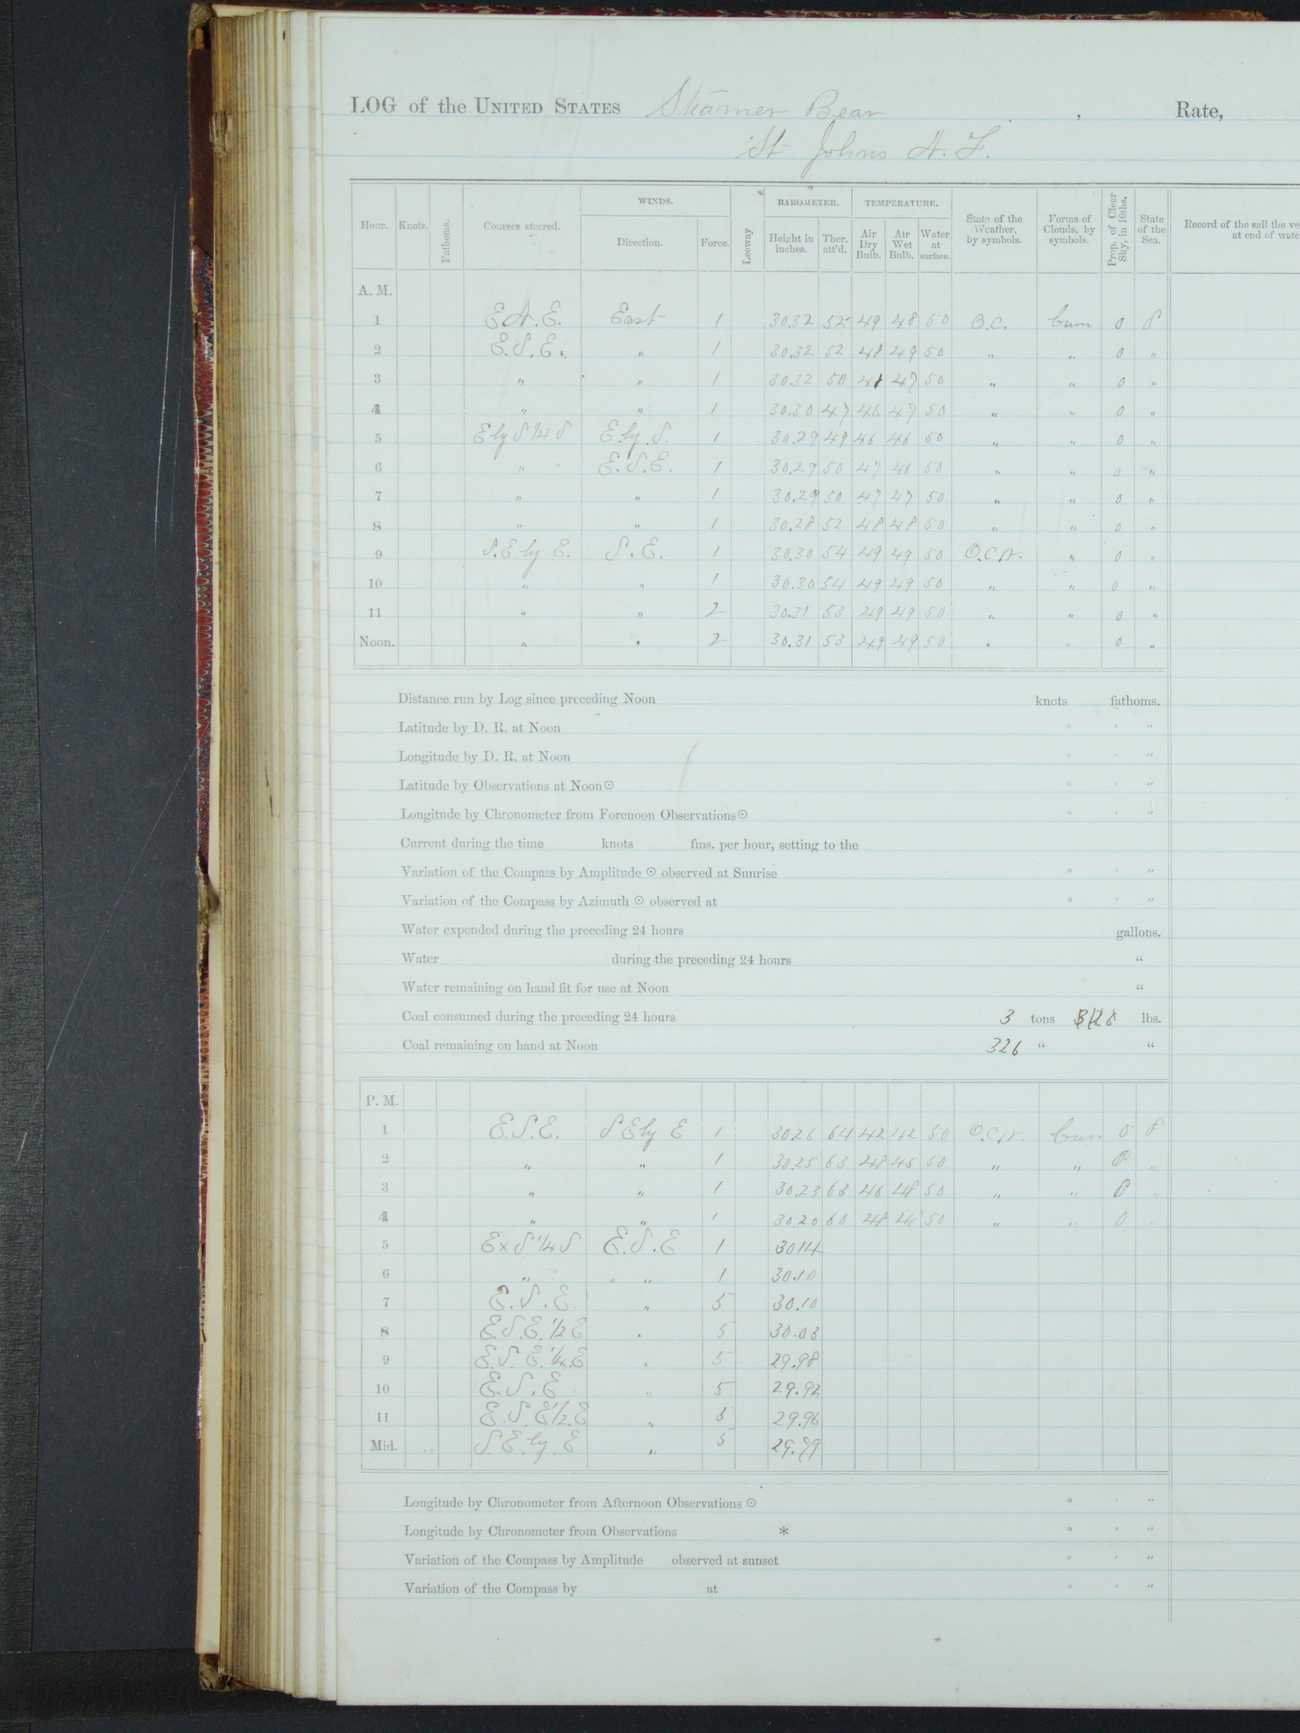 LOG of the UNITED STATES Steamer Bear , Rate,
St Johns N. F.
Hour. Knots. Fathoms. Courses steered. WINDS. Direction. Force. Leeway BAROMETER. Height in inches. Ther. att'd. TEMPERATURE. Air Dry Bulb. Air Wet Bulb. Water at surface. State of the Weather, by symbols. Forms of Clouds, by symbols. Prop. of Clear Sky, in 10ths. State of the Sea. Record of the sail the ve
at end of watc
A. M.
1 E.N.E. East 1 30.32 52 49 48 50 O.C. Cum 0 S
2 E.S.E. " 1 30.32 52 48 49 50 " " 0 "
3 " " 1 30.32 50 48 47 50 " " 0 "
4 " " 1 30.30 47 46 47 50 " " 0 "
5 E by S 1/4 S E by S. 1 30.29 49 46 46 50 " " 0 "
6 " E.S.E. 1 30.29 50 47 46 50 " " 0 "
7 " " 1 30.29 50 47 47 50 " " 0 "
8 " " 1 30.28 52 48 48 50 " " 0 "
9 S.E by E. S.E. 1 30.30 54 49 49 50 " 0 "
10 " " 1 30.30 54 49 49 50 " " 0 "
11 " " 2 30.31 53 49 49 50 " " 0 "
Noon. " " 2 30.31 53 49 49 50 " " 0 "
Distance run by Log since preceding Noon knots fathoms.
Latitude by D. R. at Noon ° ′ ″
Longitude by D. R. at Noon ° ′ ″
Latitude by Observations at Noon ☉ ° ′ ″
Longitude by Chronometer from Forenoon Observations ☉ ° ′ ″
Current during the time knots fms. per hour, setting to the
Variation of the Compass by Amplitude ☉ observed at Sunrise ° ′ ″
Variation of the Compass by Azimuth ☉ observed at ° ′ ″
Water expended during the preceding 24 hours gallons.
Water during the preceding 24 hours “
Water remaining on hand fit for use at Noon “
Coal consumed during the preceding 24 hours 3 tons lbs.
Coal remaining on hand at Noon 326 “ “
P. M.
1 E.S.E. S E by E 1 30.26 64 42 42 50 Cum 0 S
2 " " 1 30.25 63 48 45 50 " " 0 "
3 " " 1 30.23 63 46 48 50 " " 0 "
4 " " 1 30.20 60 48 48 50 " " 0 "
5 E x S 1/4 S E.S.E 1 30.14
6 " " 1 30.10
7 E.S.E. " 5 30.10
8 E.S.E. 1/2 E " 5 30.03
9 E.S.E. 1/4 E " 5 29.98
10 E.S.E " 5 29.92
11 E.S.E 1/2 E " 5 29.96
Mid. S.E. by E " 5 29.79
Longitude by Chronometer from Afternoon Observations ☉ ° ′ ″
Longitude by Chronometer from Observations * ° ′ ″
Variation of the Compass by Amplitude observed at sunset ° ′ ″
Variation of the Compass by at ° ′ ″